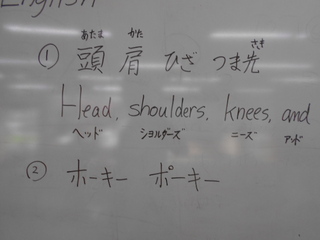 English
あたま かた さき
① 頭 肩 ひざ つま先
Head, shoulders, knees, and
ヘッド ショルダーズ ニーズ アンド
② ホーキー ポーキー